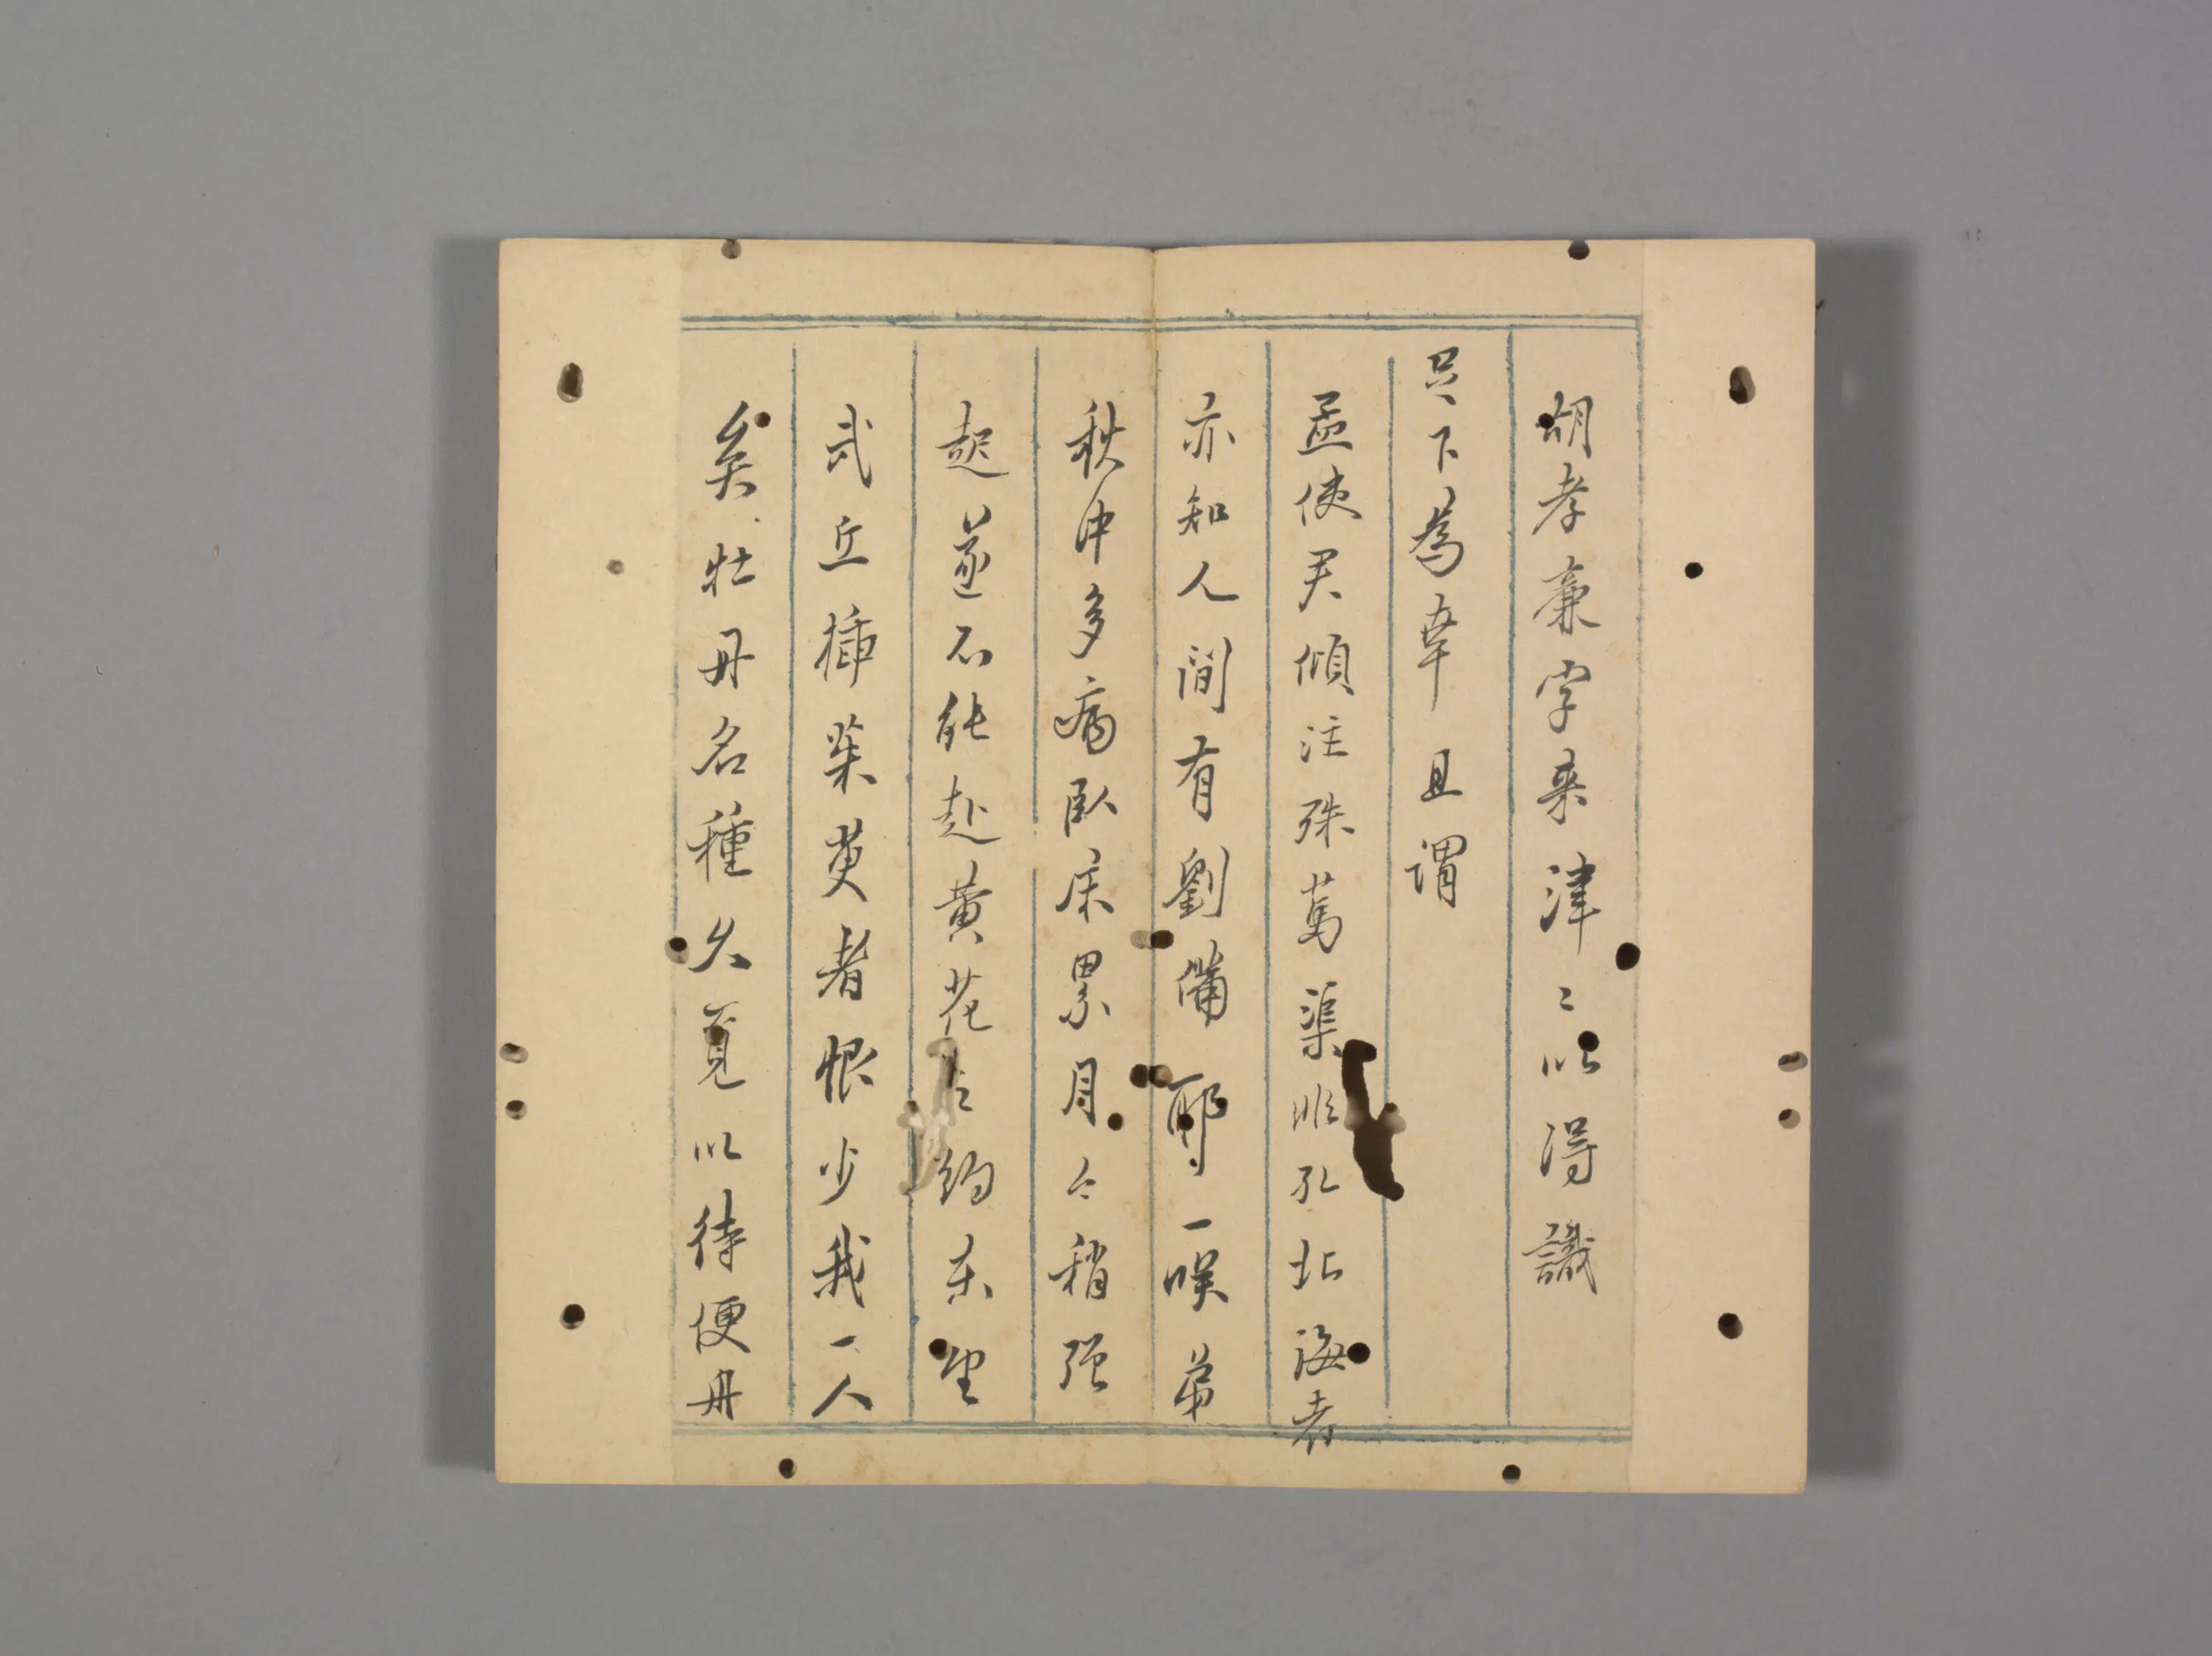 胡孝廉字来津〻以得識
足下為幸且謂
孟使君傾注殊萬渠非孔北海者
亦知人間有劉備耶一嘆弟
秋中多病臥床累月今稍强
起遂不能赴黄花之約东望
武丘插茱萸者恨少我一人
矣牡丹名種久覓以待便舟